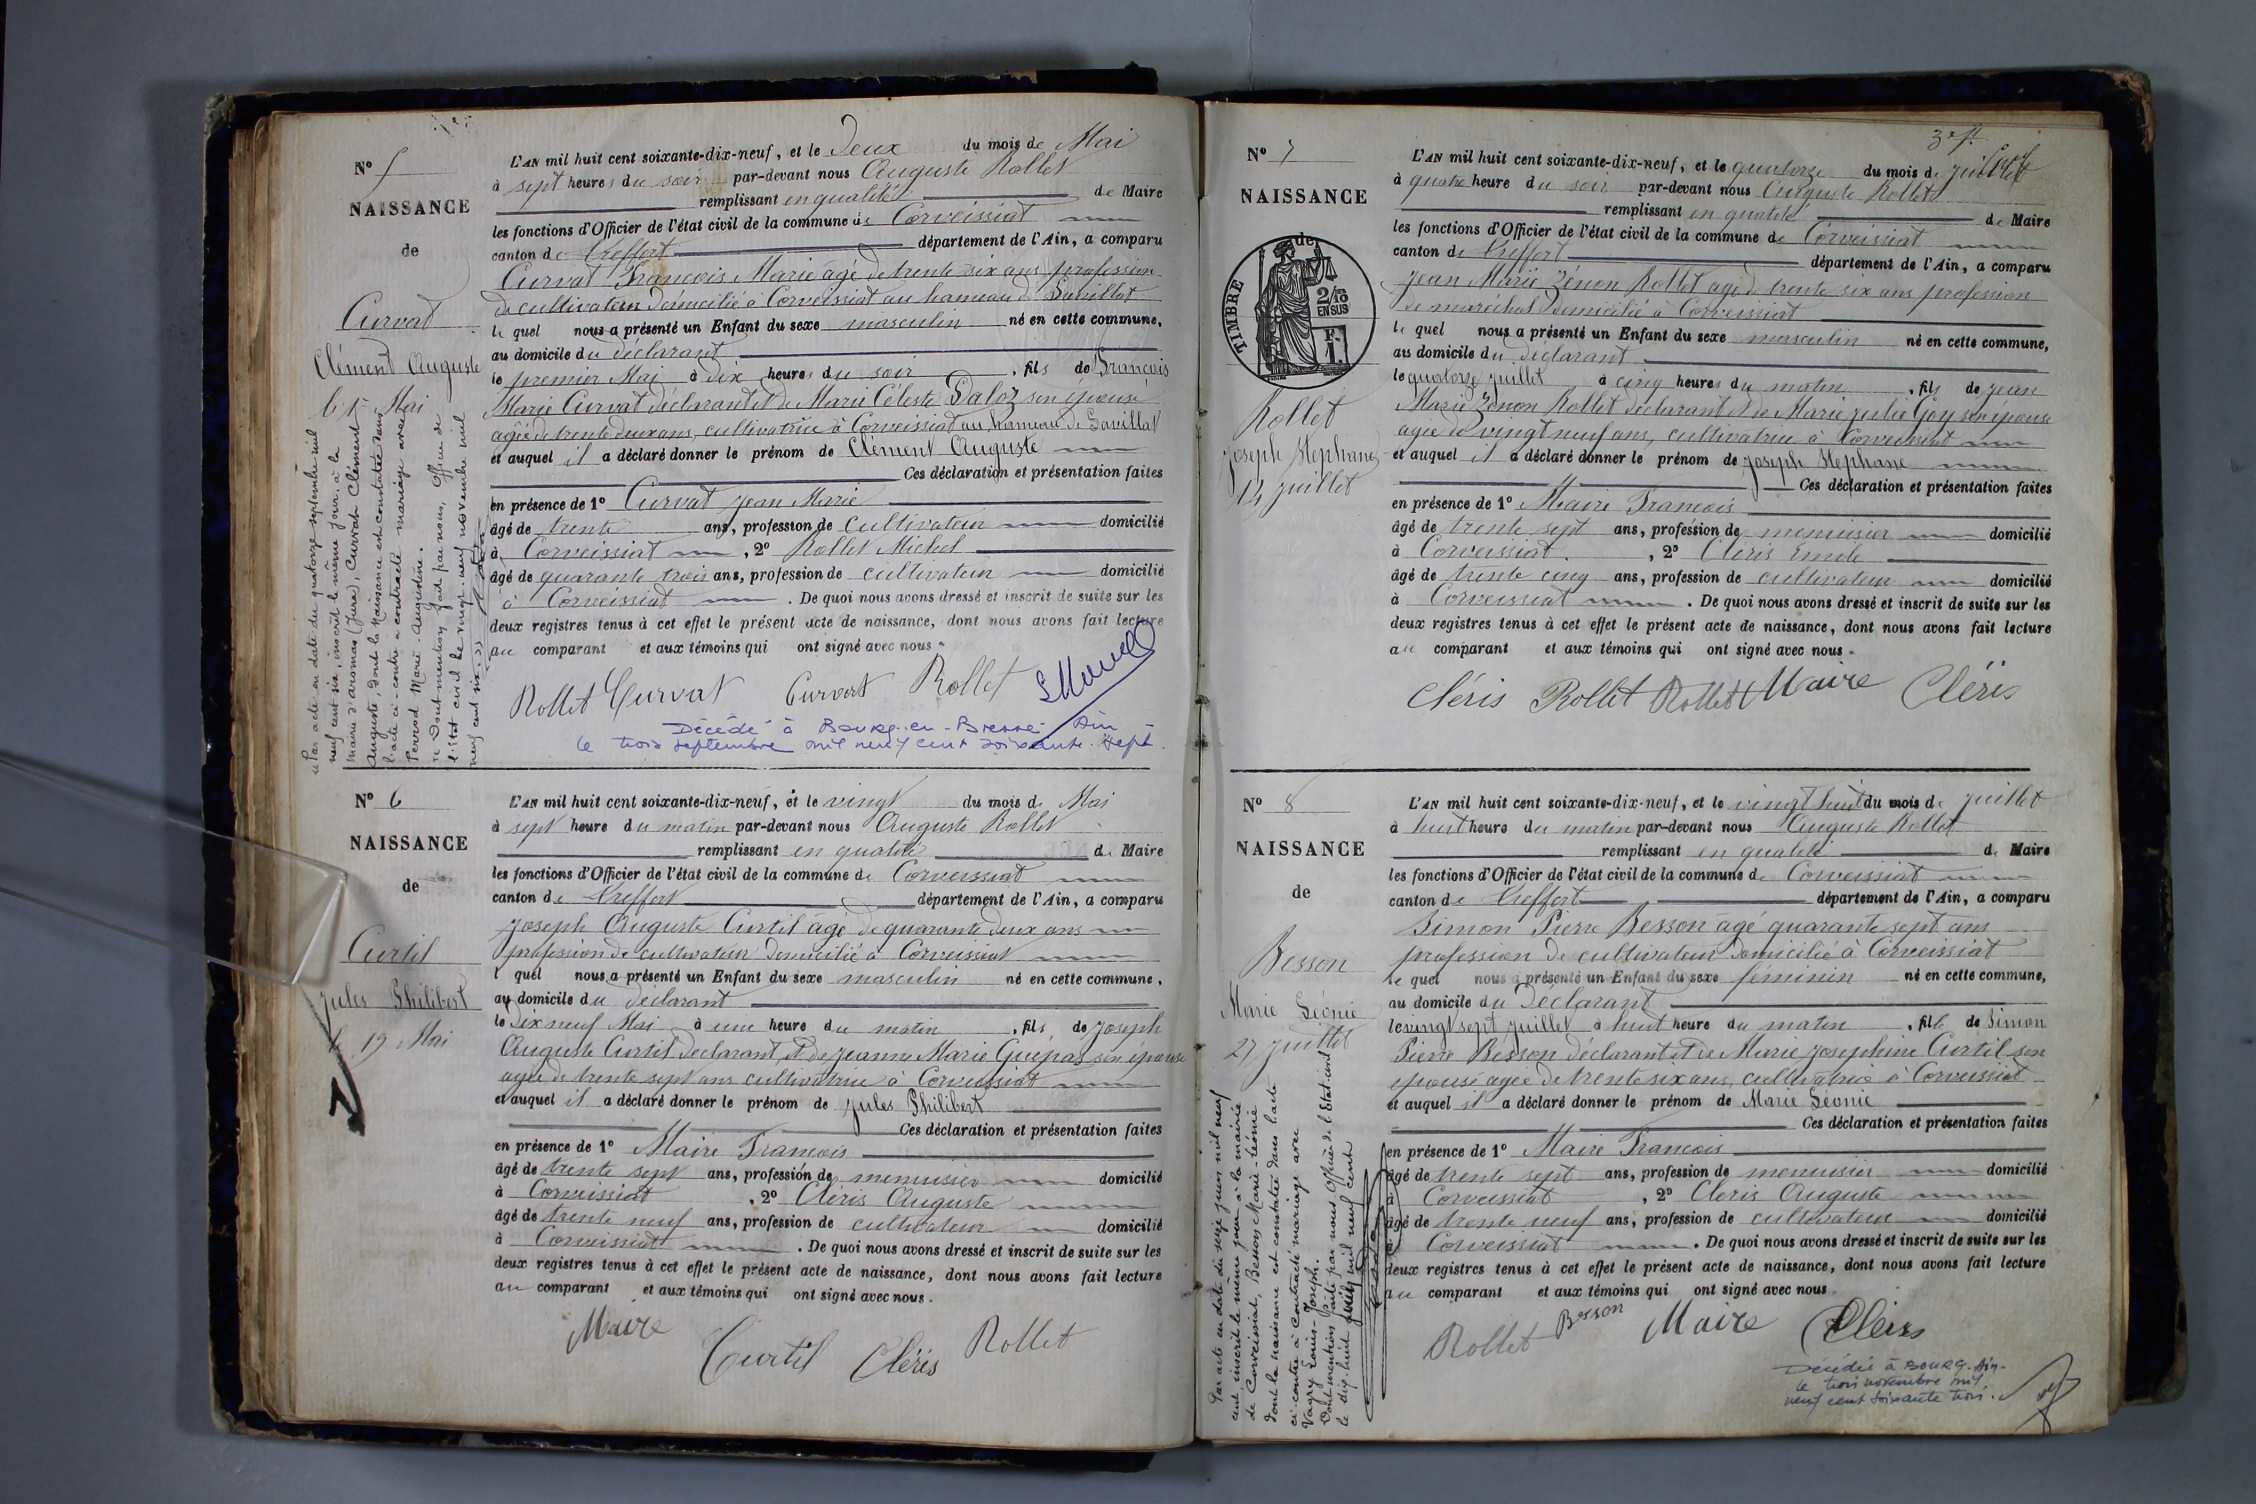 N° 5
NAISSANCE
de
Curvat
Clément Auguste
le 1er Mai
L'AN mil huit cent soixante-dix-neuf, et le Deux du mois de Mai
à sept heures du soir par-devant nous Auguste Rollet
remplissant en qualité de Maire
les fonctions d'Officier de l'état civil de la commune de Corveissiat
canton de Treffort département de l'Ain, a comparu
Curvat François Marie âgé de trente six ans profession
de cultivateur domicilié à Corveissiat au hameau de
le quel nous a présenté un Enfant du sexe masculin né en cette commune,
au domicile du déclarant
le premier Mai à dix heures du soir, fils de François
Marie Curvat déclarant et de Marie Céleste Daloz son épouse
agée de trente deux ans, cultivatrice à Corveissiat au hameau de
et auquel il a déclaré donner le prénom de Clément Auguste
Ces déclaration et présentation faites
en présence de 1° Curvat Jean Marie
âgé de trente ans, profession de cultivateur domicilié
à Corveissiat, 2° Rollet Michel
âgé de quarante trois ans, profession de cultivateur domicilié
à Corveissiat. De quoi nous avons dressé et inscrit de suite sur les
deux registres tenus à cet effet le présent acte de naissance, dont nous avons fait lecture
au comparant et aux témoins qui ont signé avec nous.
Rollet Curvat Curvat Rollet
Décédé à Bourg-en-Bresse Ain
le trois septembre mil neuf cent soixante sept.
Par acte en date du quatorze septembre mil
neuf cent six, inscrit le même jour, à la
mairie d'Aromas (Jura), Curvat Clément
Auguste, dont la naissance est constatée dans
l'acte ci-contre a contracté mariage avec
Perrod Marie-Augustine.
Dont mention faite par nous, Officier de
l'état civil le vingt-neuf novembre mil
neuf cent six.
N° 6
NAISSANCE
de
Curtil
Jules Philibert
le 19 Mai
L'AN mil huit cent soixante-dix-neuf, et le vingt du mois de Mai
à sept heure du matin par-devant nous Auguste Rollet
remplissant en qualité de Maire
les fonctions d'Officier de l'état civil de la commune de Corveissiat
canton de Treffort département de l'Ain, a comparu
Joseph Auguste Curtil âgé de quarante deux ans
profession de cultivateur domicilié à Corveissiat
l quel nous a présenté un Enfant du sexe masculin né en cette commune,
au domicile du déclarant
le Dix neuf Mai à une heure du matin, fils de Joseph
Auguste Curtil déclarant et de Jeanne Marie Guépas son épouse
agée de trente sept ans cultivatrice à Corveissiat
et auquel il a déclaré donner le prénom de Jules Philibert
Ces déclaration et présentation faites
en présence de 1° Maire François
âgé de trente sept ans, profession de menuisier domicilié
à Corveissiat, 2° Cléris Auguste
âgé de trente neuf ans, profession de cultivateur domicilié
à Corveissiat. De quoi nous avons dressé et inscrit de suite sur les
deux registres tenus à cet effet le présent acte de naissance, dont nous avons fait lecture
au comparant et aux témoins qui ont signé avec nous.
Maire Curtil Cléris Rollet
N° 7
NAISSANCE
de
TIMBRE
2/10
EN SUS
F.
1.
Rollet
Joseph Stephane
14 Juillet
L'AN mil huit cent soixante-dix-neuf, et le quatorze du mois de Juillet
à quatre heure du soir par-devant nous Auguste Rollet
remplissant en qualité de Maire
les fonctions d'Officier de l'état civil de la commune de Corveissiat
canton de Treffort département de l'Ain, a comparu
Jean Marie Zénon Rollet agé de trente six ans profession
de maréchal domicilié à Corveissiat
le quel nous a présenté un Enfant du sexe masculin né en cette commune,
au domicile du déclarant
le quatorze juillet à cinq heures du matin, fils de Jean
Marie Zénon Rollet déclarant et de Marie Julie Goy son épouse
agée de vingt neuf ans, cultivatrice à Corveissiat
et auquel il a déclaré donner le prénom de Joseph Stephane
Ces déclaration et présentation faites
en présence de 1° Maire François
âgé de trente sept ans, profession de menuisier domicilié
à Corveissiat, 2° Cléris Emile
âgé de trente cinq ans, profession de cultivateur domicilié
à Corveissiat. De quoi nous avons dressé et inscrit de suite sur les
deux registres tenus à cet effet le présent acte de naissance, dont nous avons fait lecture
au comparant et aux témoins qui ont signé avec nous.
Cléris Rollet Rollet Maire Cléris
N° 8
NAISSANCE
de
Besson
Marie Léonie
27 Juillet
L'AN mil huit cent soixante-dix-neuf, et le vingt huit du mois de Juillet
à huit heure du matin par-devant nous Auguste Rollet
remplissant en qualité de Maire
les fonctions d'Officier de l'état civil de la commune de Corveissiat
canton de Treffort département de l'Ain, a comparu
Simon Pierre Besson âgé quarante sept ans
profession de cultivateur domicilié à Corveissiat
le quel nous a présenté un Enfant du sexe féminin né en cette commune,
au domicile du Déclarant
le vingt sept juillet à huit heure du matin, fille de Simon
Pierre Besson déclarant et de Marie Josephine Curtil son
épouse agée de trente six ans, cultivatrice à Corveissiat
et auquel il a déclaré donner le prénom de Marie Léonie
Ces déclaration et présentation faites
en présence de 1° Maire François
âgé de trente sept ans, profession de menuisier domicilié
à Corveissiat, 2° Cleris Auguste
âgé de trente neuf ans, profession de cultivateur domicilié
à Corveissiat. De quoi nous avons dressé et inscrit de suite sur les
deux registres tenus à cet effet le présent acte de naissance, dont nous avons fait lecture
au comparant et aux témoins qui ont signé avec nous
Rollet Besson Maire Cléris
Décédée à BOURG. Ain.
le trois novembre mil
neuf cent soixante trois.
Par acte en date du seize juin mil neuf
cent, inscrit le même jour à la mairie
de Corveissiat, Besson Marie-Léonie
dont la naissance est constatée dans l'acte
ci-contre à contracté mariage avec
Vagry Louis-Joseph.
Dont mention faite par nous Officier de l'Etat civil
le dix-huit juin mil neuf cent